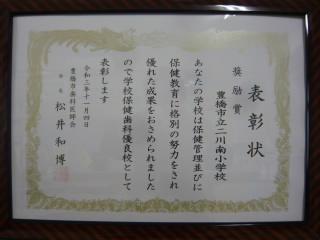 表彰状
奨励賞
豊橋市立二川南小学校
あなたの学校は保健管理並びに
保健教育に格別の努力をされ
優れた成果をおさめられました
ので学校保健歯科優良校として
表彰します
令和三年十一月四日
豊橋市歯科医師会
会長 松井和博